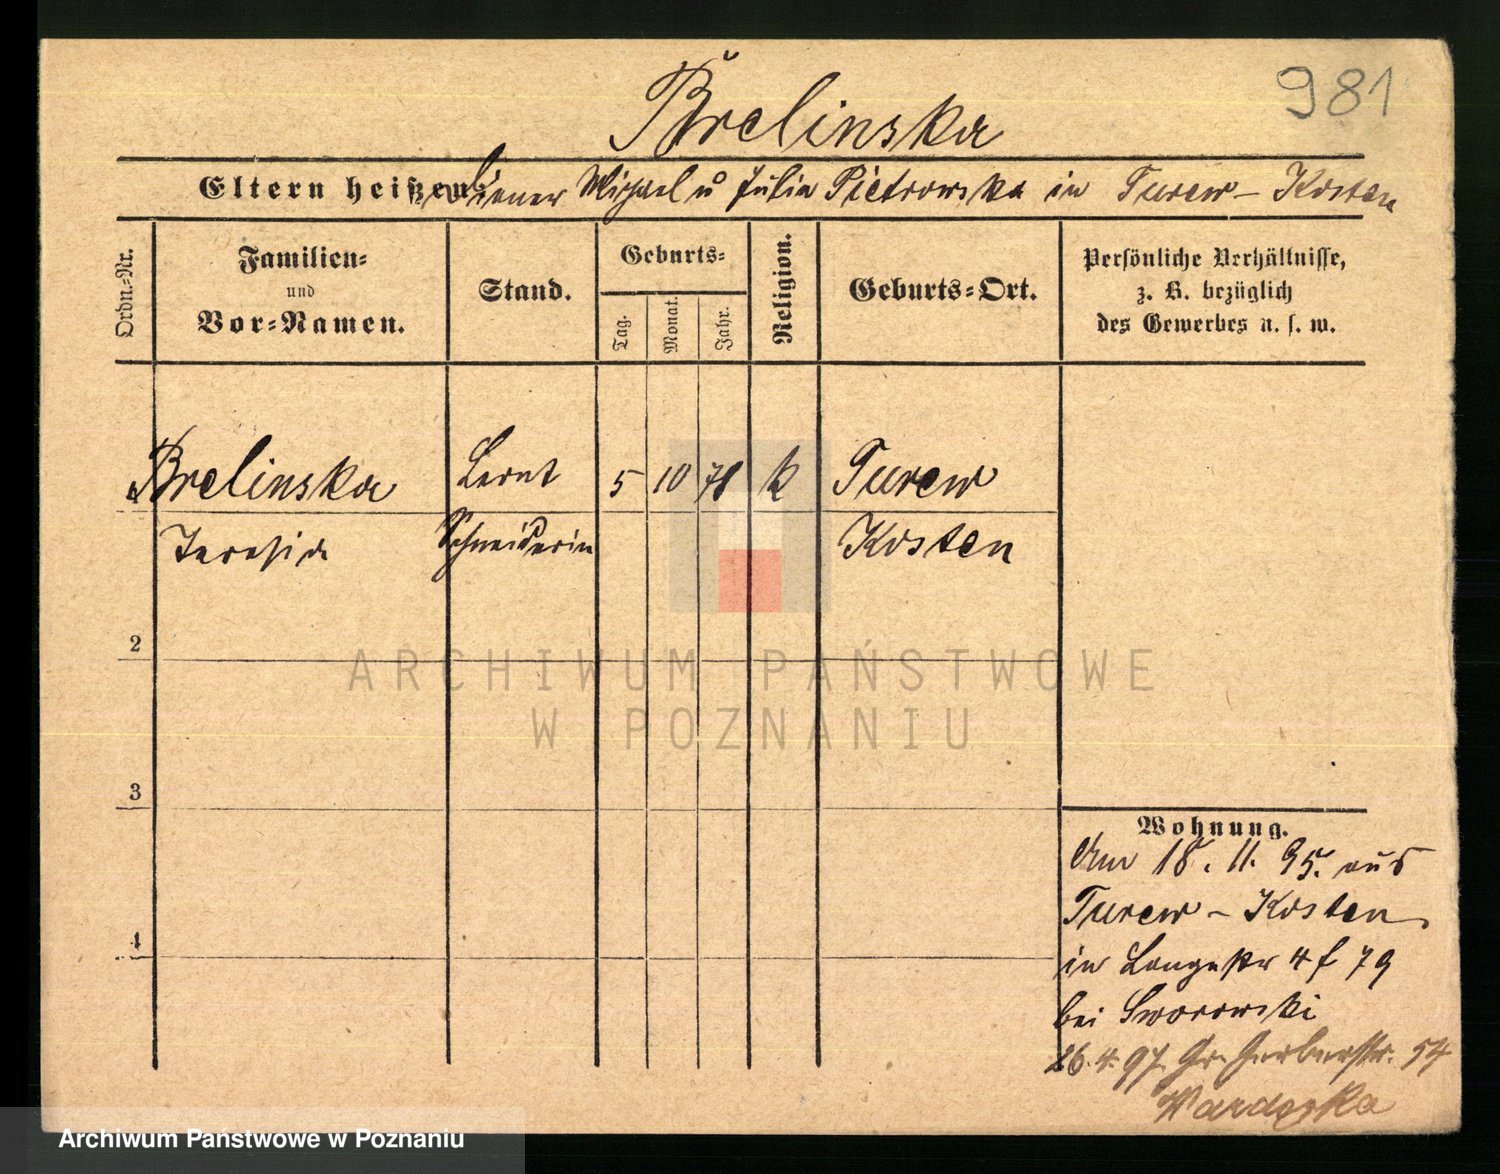 981
Brelinska
Eltern heißen: Diener Michael u Julia Pietrowska in Turew - Kosten
Ordn.-Nr.
Familien-
und
Vor-Namen.
Stand.
Geburts-
Tag.
Monat.
Jahr.
Religion.
Geburts-Ort.
Persönliche Verhältnisse,
z. B. bezüglich
des Gewerbes u. s. w.
Brelinska Lernt 5 10 78 k Turew
Schneiderin Kosten
2
3
4
Wohnung.
Am 18. 11. 95. aus
Turew - Kosten
in Langestr 4 f 79
bei Sworowski
26. 4. 97. Gr. Gerberstr. 54
ARCHIWUM PAŃSTWOWE
W POZNANIU
Archiwum Państwowe w Poznaniu